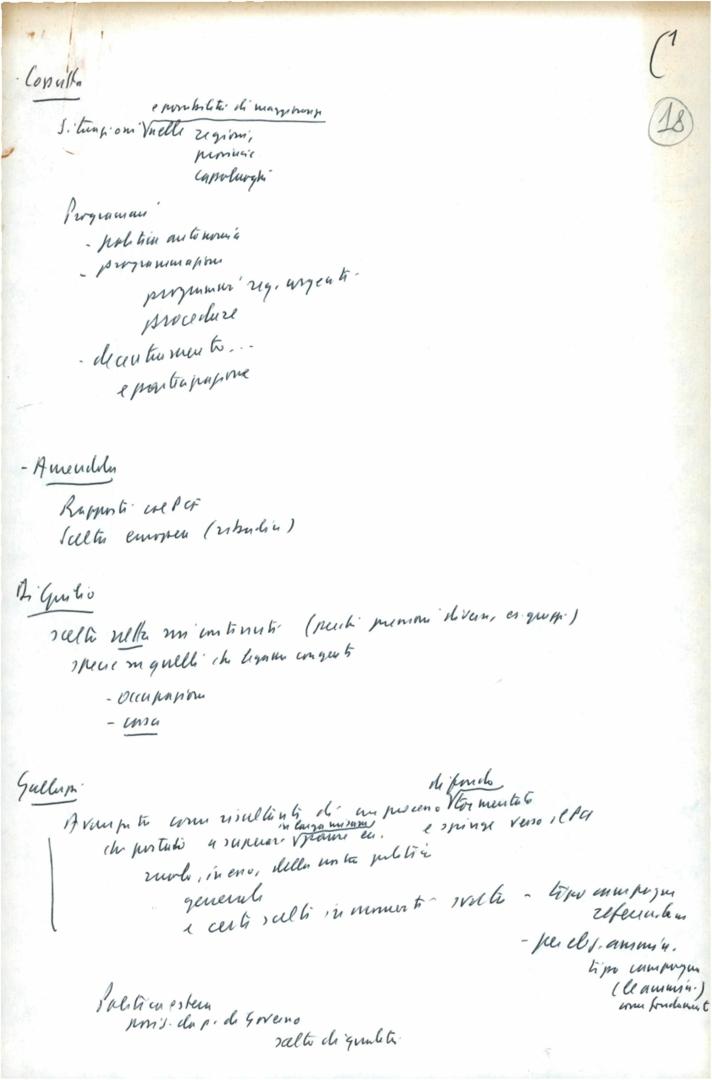 C1
18
- Cossutta
e possibilità di maggioranze
Situazioni nelle regioni,
provincie
capoluoghi
Programmi
- politica autonomia
- programmazione
programmi reg. urgenti
procedure
- decentramento...
e partecipazione
- Amendola
Rapporti col PCF
Scelta europea (ribadire)
Di Giulio
scelta netta sui contenuti (perché pressioni diverse, es. gruppi)
specie su quelli che legano congiunt.
- occupazione
- casa
Galluzzi
di fondo
Avanzata come risultante di un processo tormentato
in larga misura
che portato a superare paure ecc. e spinge verso il PCI
ruolo, in esso, della nostra politica
generale
e certe scelte in momenti svolta - tipo campagna
referendum
- per elez. ammin.
tipo campagna
(le ammin.)
come fondament
Politica estera
posiz. da p. di Governo
salto di qualità